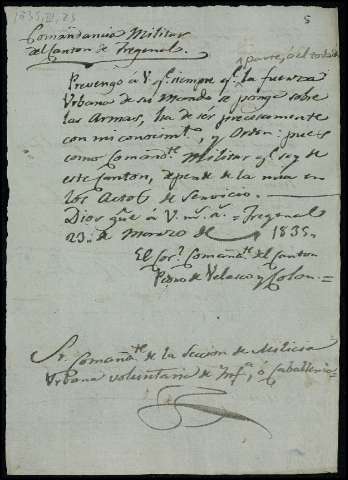 1835, III, 23
5
Comandancia Militar
del Canton de Fregenal.
Prevengo á V. qe. siempre qe. la fuerza
Urbana de su Mando se ponga sobre
las Armas, ha de ser precisamente
con mi conocimto., y Orden: pues
como Comandte. Militar qe. soy de
este Canton, depende de la mia en
los Actos de Servicio.
Dios gue. á V. ms. as. Fregenal
23 de Marzo de 1835.
El Cor. Comandte. del Canton
Pedro de Velasco y Colon.
Sr. Comandte. de la Seccion de Milicia
Urbana voluntaria de Infa. ó Caballeria